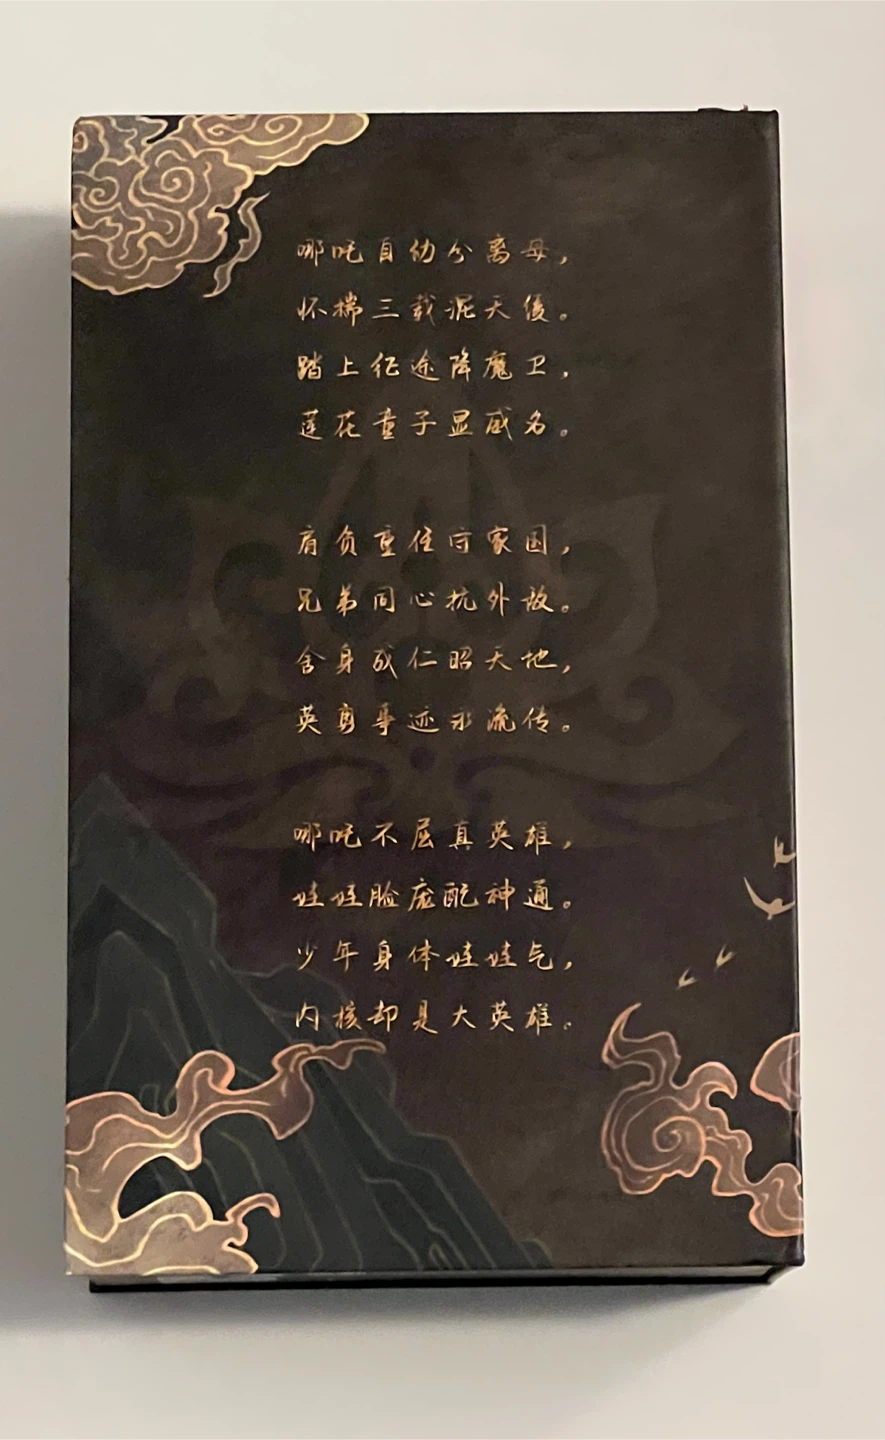 哪吒自幼分离母，
怀揣三载混天绫。
踏上征途降魔卫，
莲花童子显威名。
肩负重任守家国，
兄弟同心抗外敌。
舍身成仁昭天地，
英勇事迹永流传。
哪吒不屈真英雄，
娃娃脸庞配神通。
少年身体娃娃气，
内核却是大英雄。